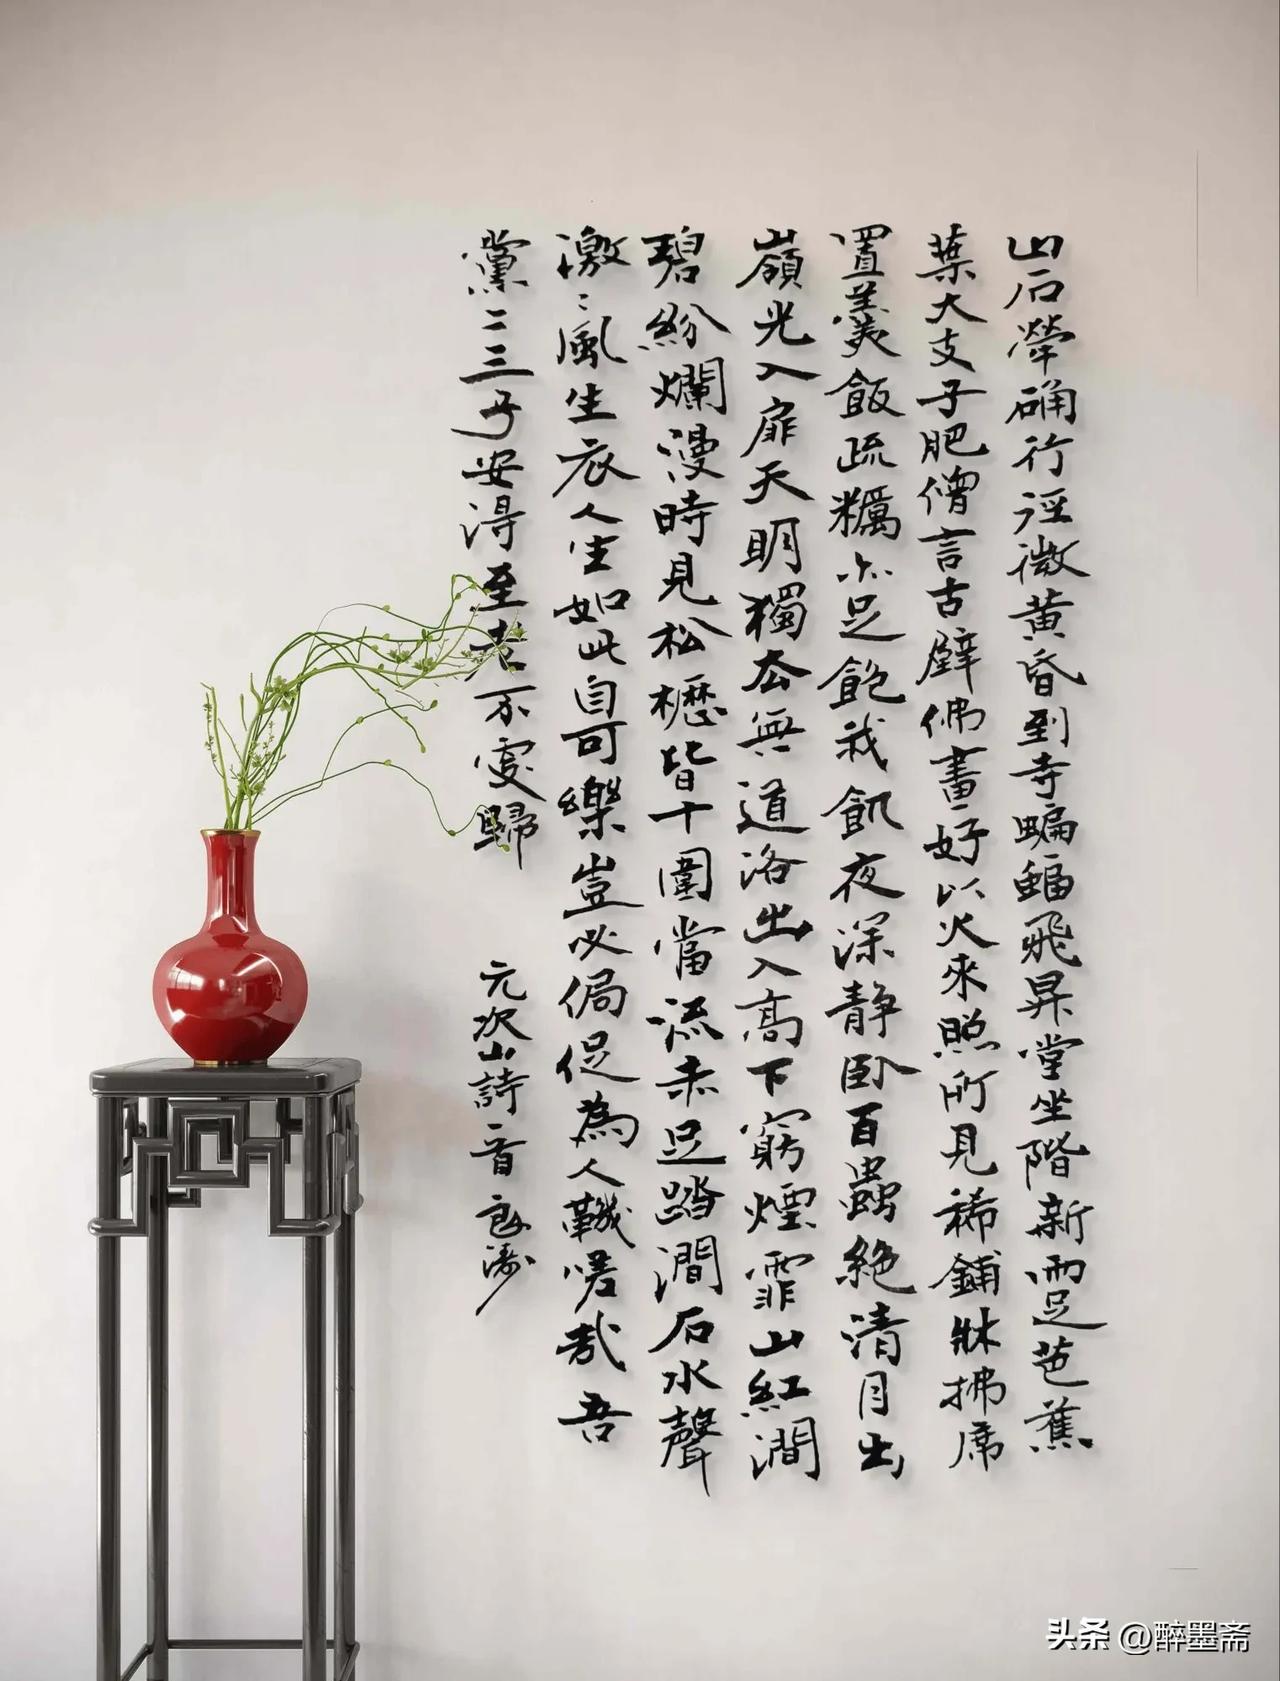 山石犖确行徑微黄昏到寺蝙蝠飛昇堂坐階新雨足芭蕉
葉大支子肥僧言古壁佛畫好以火來照所見稀鋪牀拂席
置羹飯疏糲亦足飽我飢夜深静卧百蟲絶清月出
嶺光入扉天明獨去無道洛出入高下窮煙霏山紅澗
碧紛爛漫時見松櫪皆十圍當流赤足踏澗石水聲
激〻風生衣人生如此自可樂豈必侷促為人鞿嗟哉吾
黨二三子安得至老不更歸
元次山詩一首
头条 @醉墨斋